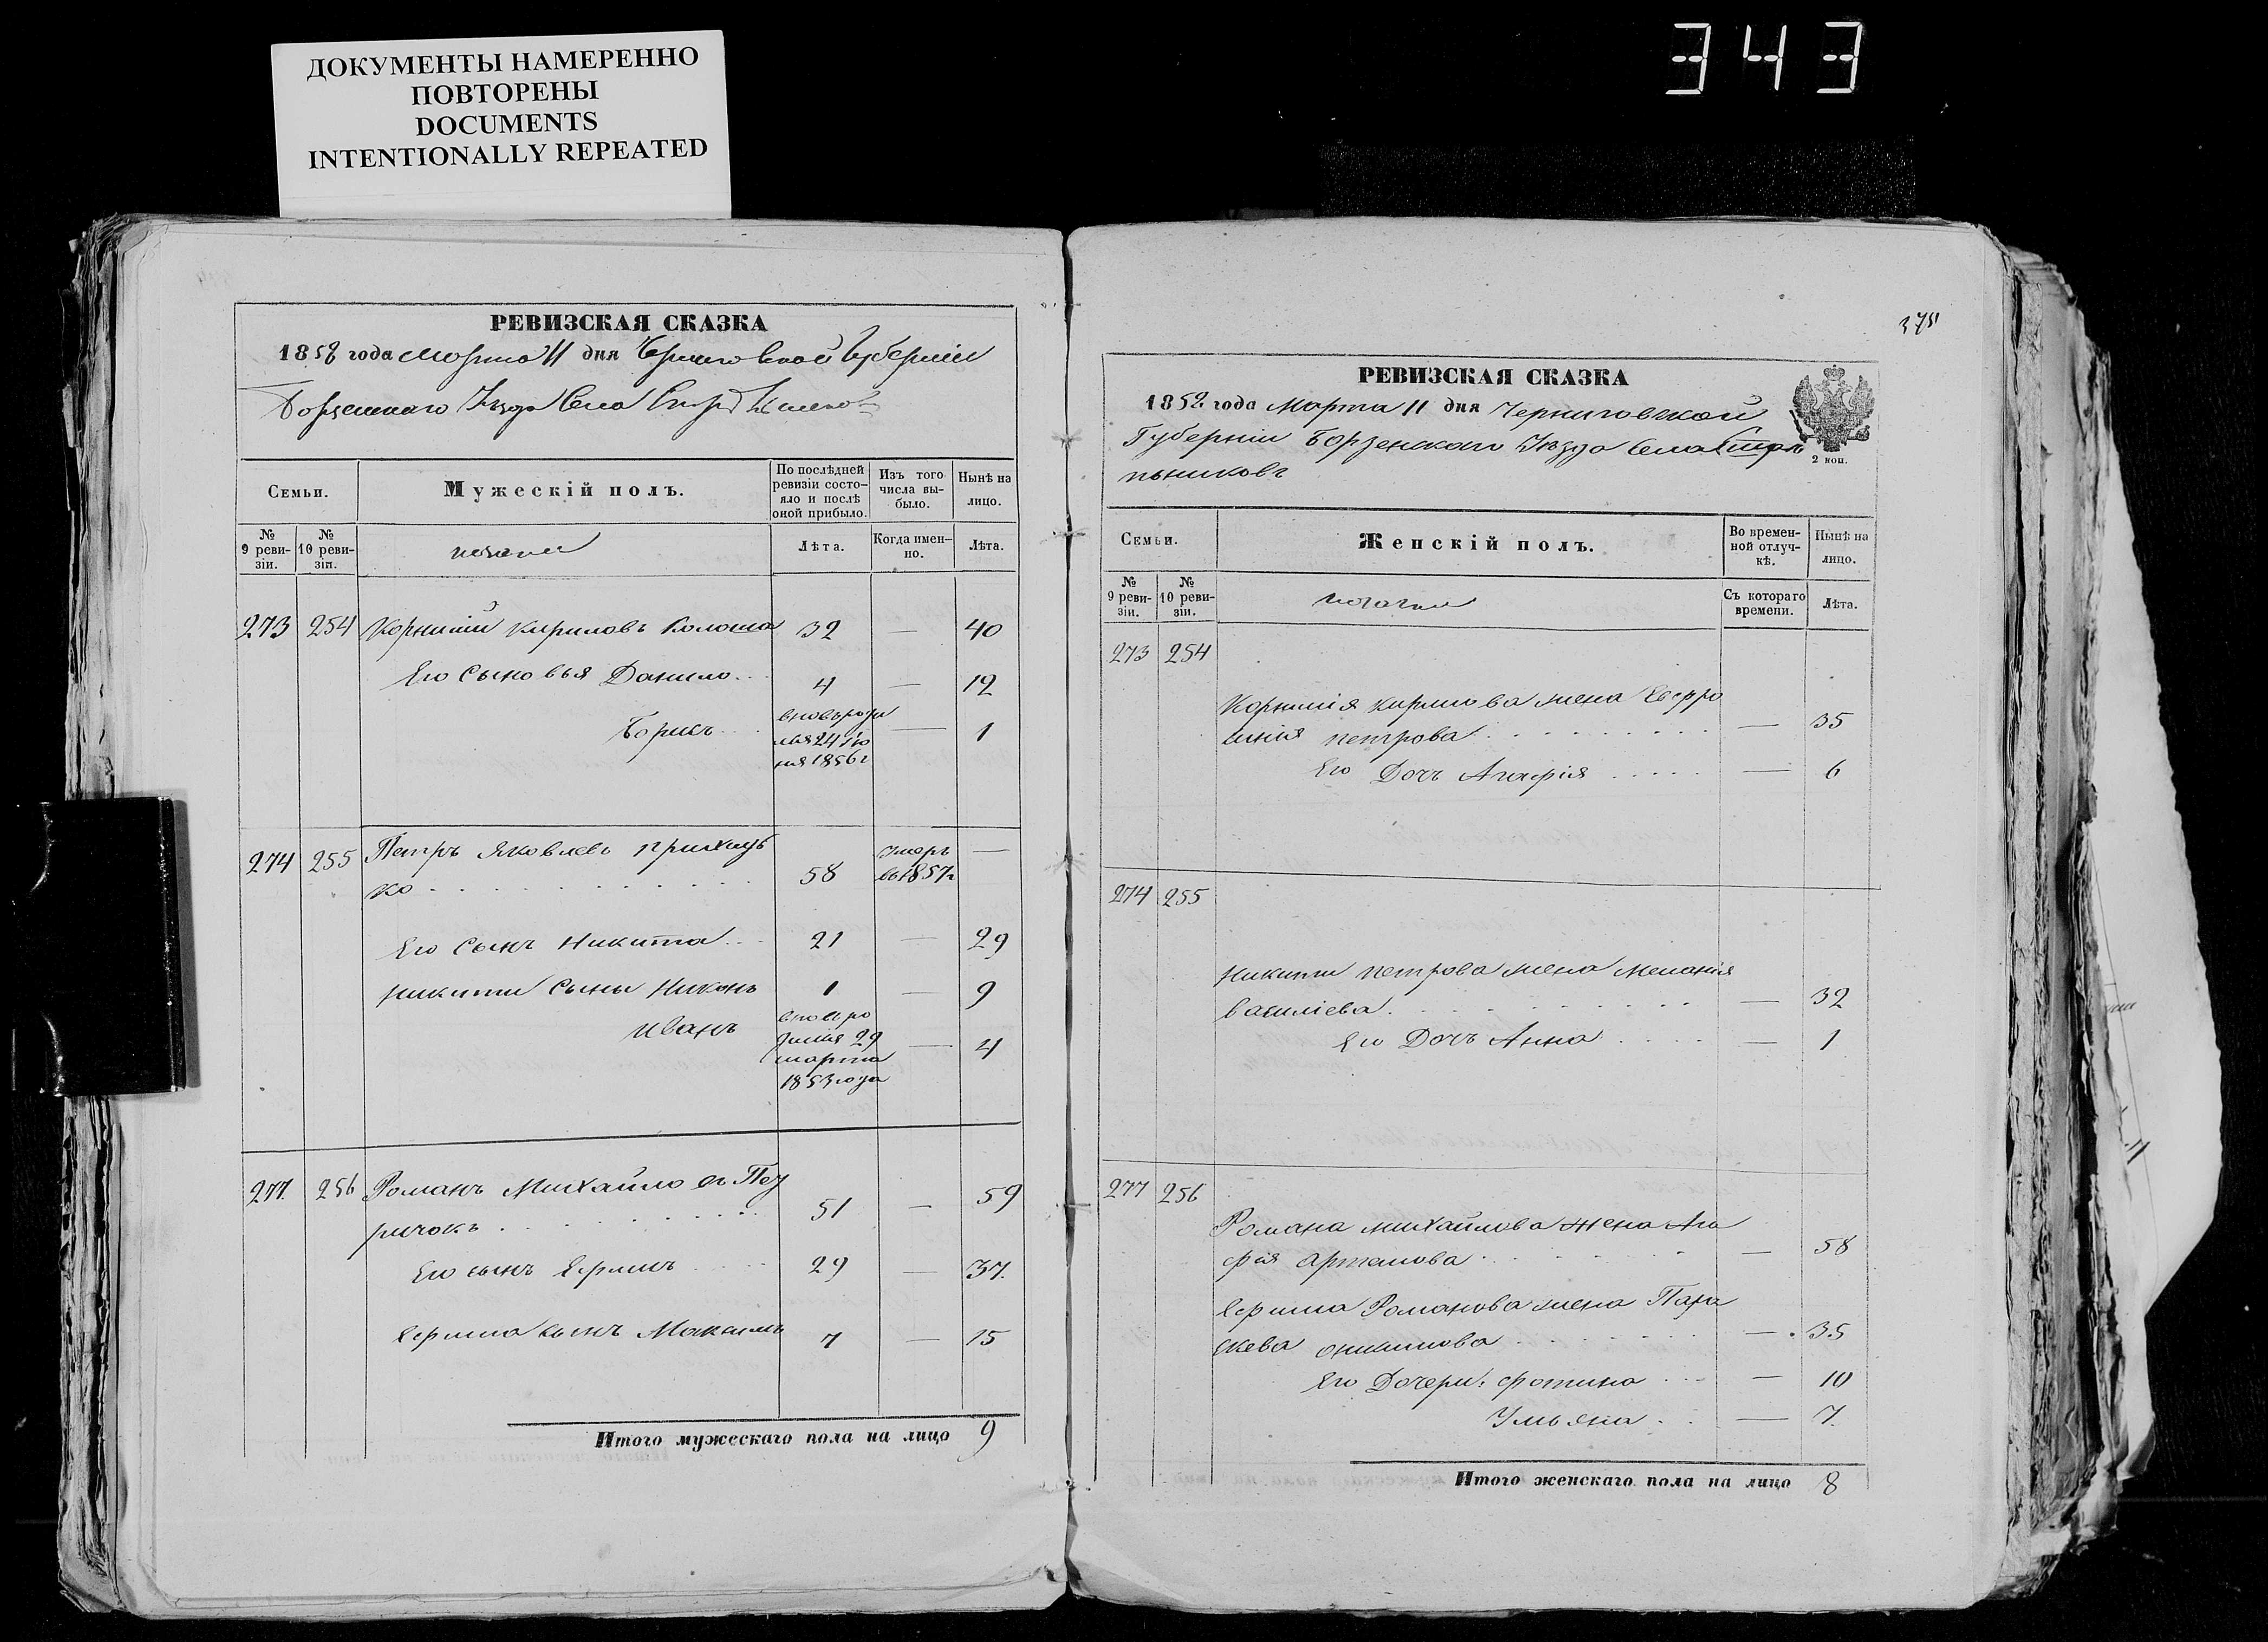 ДОКУМЕНТЫ НАМЕРЕННО
ПОВТОРЕНЫ
DOCUMENTS
INTENTIONALLY REPEATED
343
РЕВИЗСКАЯ СКАЗКА
1858 года Марта 11 дня Черниговской Губернiи
Борзенскаго Уѣзда Села
Семьи.
Мужескiй полъ.
По послѣдней ревизiи состояло и послѣ оной прибыло.
Изъ того числа выбыло.
Нынѣ на лицо.
№ 9 ревизiи.
№ 10 ревизiи.
козаки
Лѣта.
Когда именно.
Лѣта.
273 254 Корнилiй Кириловъ Колоша 32 — 40
Его Сыновья Данило 4 — 12
Борисъ
вновь роди
лся 24 Iю
ля 1856 г — 1
274 255 Петръ Яковлевъ Приходь
ко 58 умеръ въ 1857 г —
Его Сынъ Никита 21 — 29
Никиты Сыны Никонъ 1 — 9
Иванъ
вновь ро
дился 29
марта
1853 года — 4
277. 256 Романъ Михайловъ Поу
ричокъ 51 — 59
Его сынъ Ефимъ 29 — 37.
Ефима сынъ Максимъ 7 — 15
Итого мужескаго пола на лицо 9
375
РЕВИЗСКАЯ СКАЗКА
1858 года Марта 11 дня Черниговской
Губернiи Борзенскаго Уѣзда Села Стрѣ
льниковъ
2 коп.
Семьи.
Женскiй полъ.
Во временной отлучкѣ.
Нынѣ на лицо.
№ 9 ревизiи.
№ 10 ревизiи.
козачки
Съ котораго времени.
Лѣта.
273 254
Корнилiя Кирилова жена Евфро
синiя Петрова — 35
Его Дочь Агафiя — 6
274 255
Никиты Петрова жена Меланiя
Василiева — 32
Его Дочь Анна — 1
277 256
Романа Михайлова жена Ага
фiя Артемова — 58
Ефима Романова жена Пара
скева Онисимова — 35
Его Дочери: Фотина — 10
Ульяна — 7.
Итого женскаго пола на лицо 8